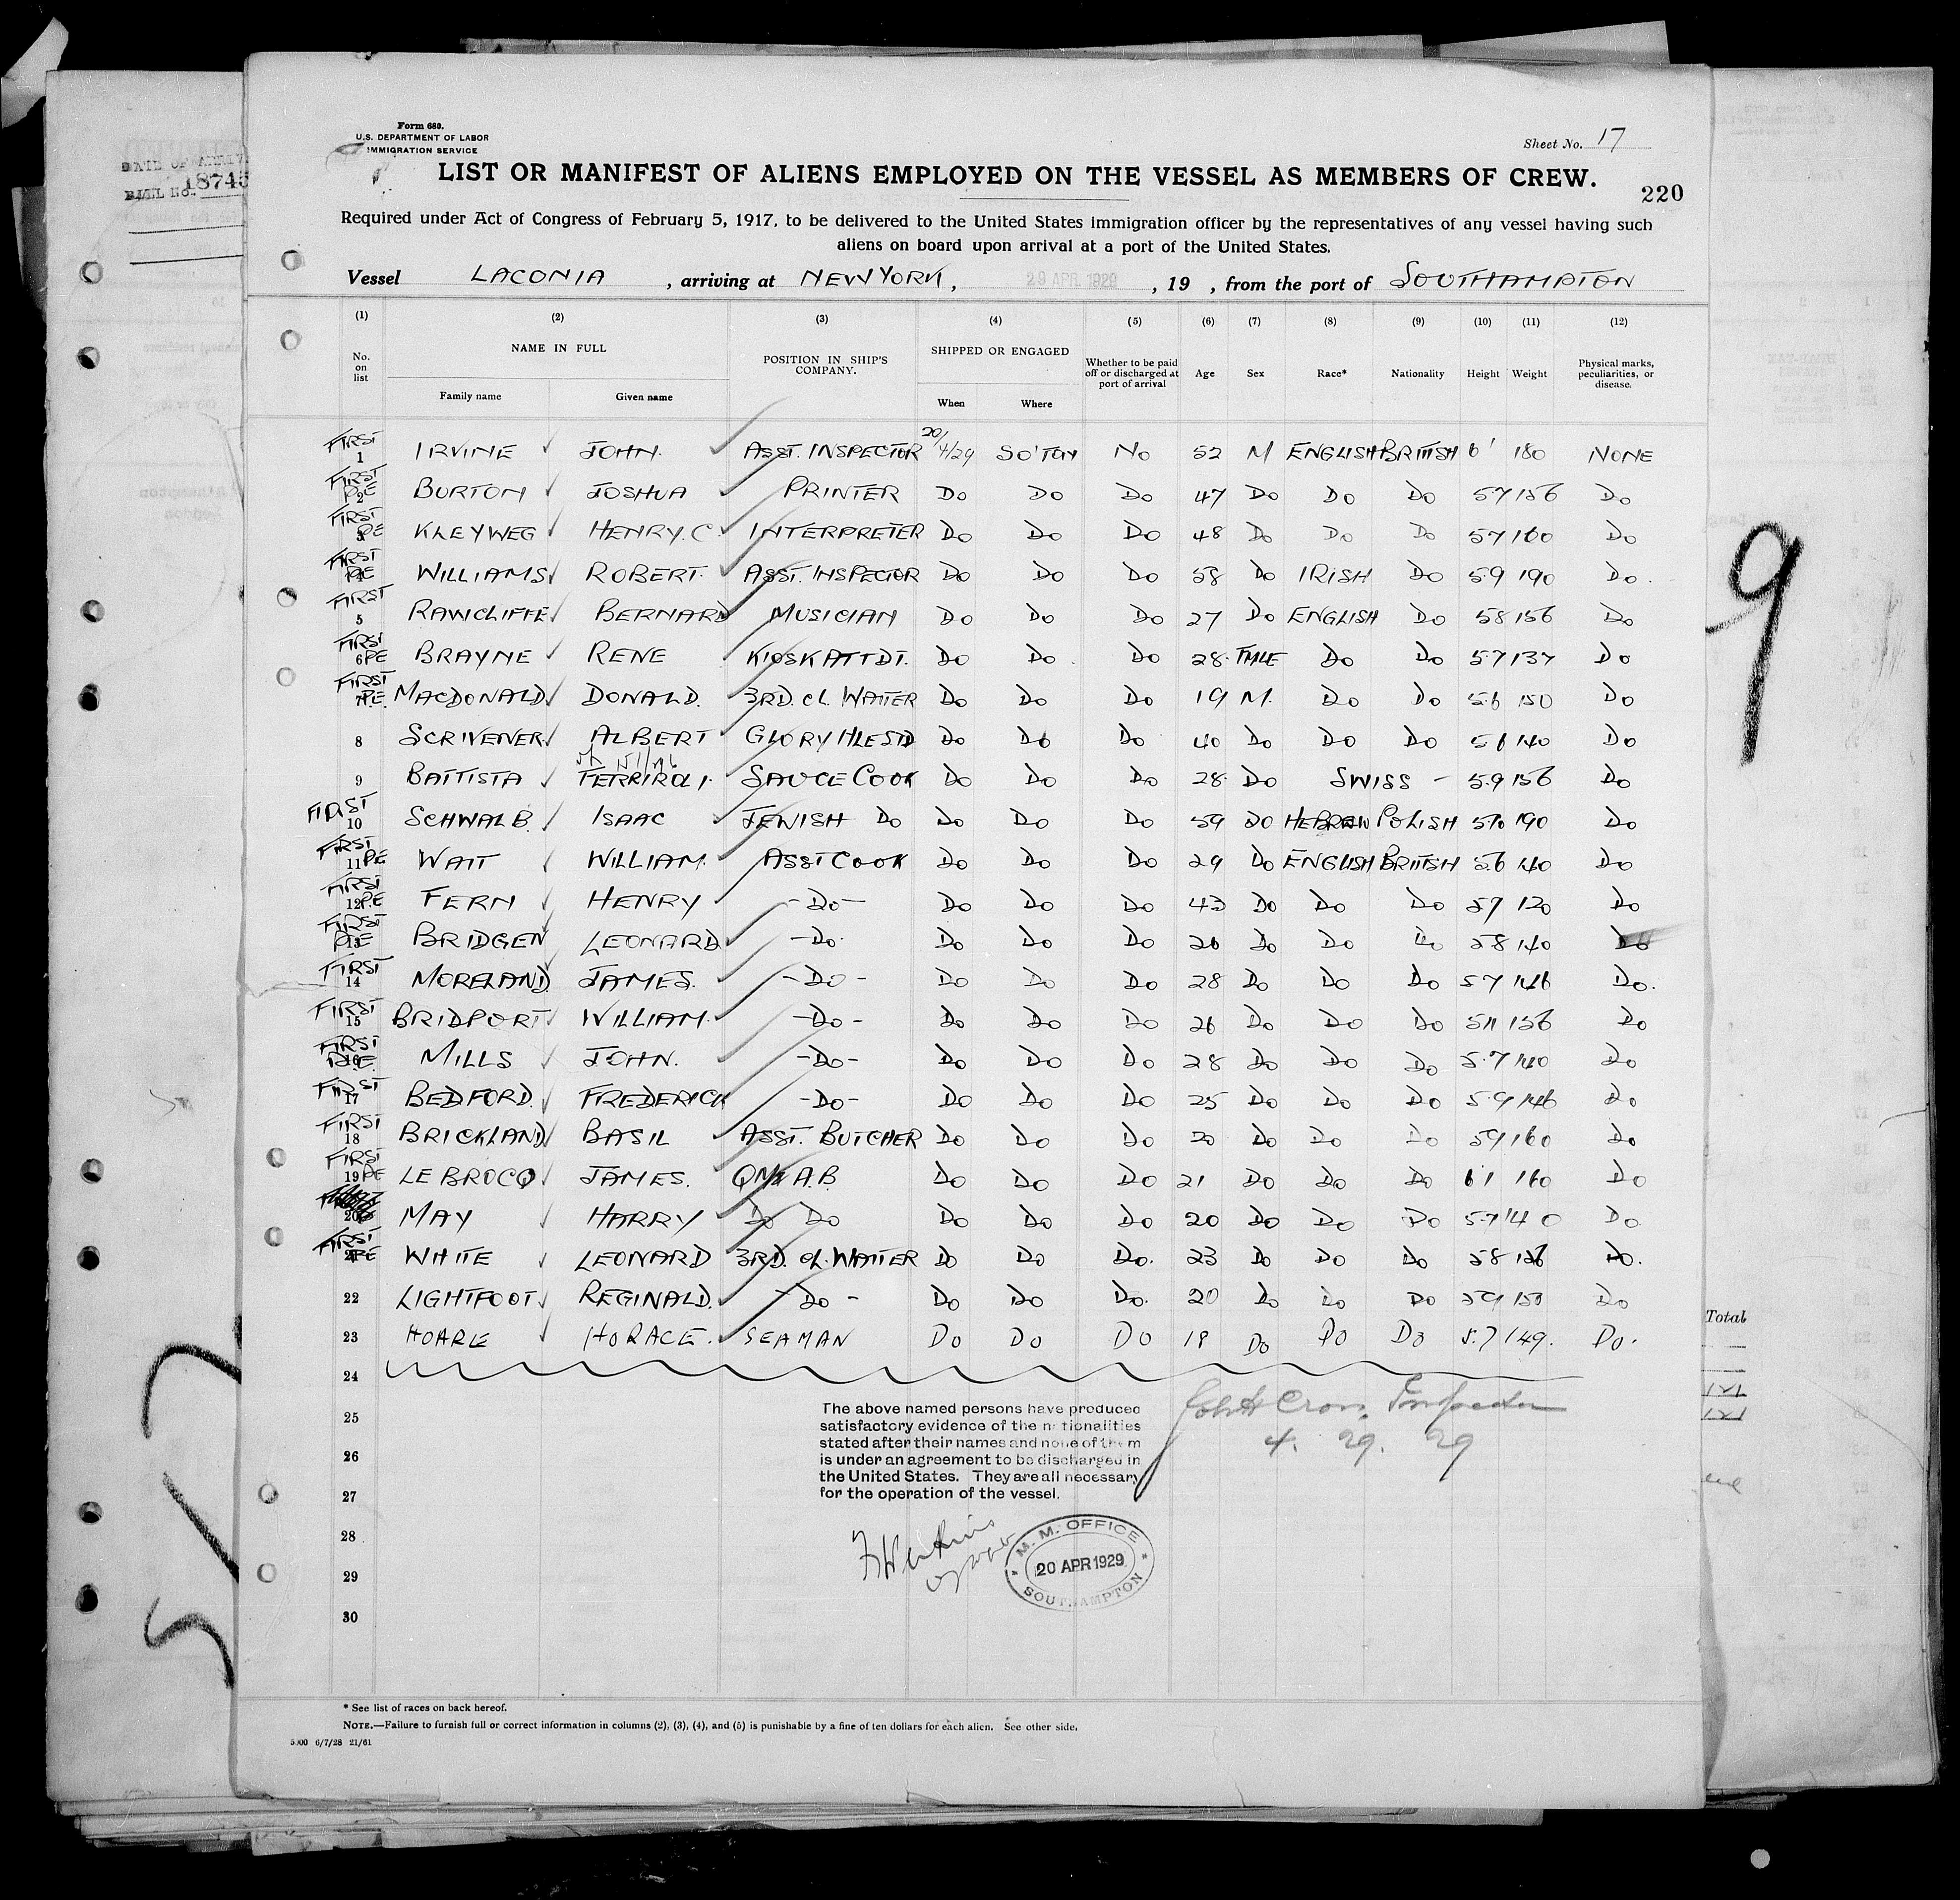 Form 680.
U.S. DEPARTMENT OF LABOR
IMMIGRATION SERVICE
Sheet No. 17
LIST OR MANIFEST OF ALIENS EMPLOYED ON THE VESSEL AS MEMBERS OF CREW.
220
18745
Required under Act of Congress of February 5, 1917, to be delivered to the United States immigration officer by the representatives of any vessel having such
aliens on board upon arrival at a port of the United States.
Vessel LACONIA, arriving at NEW YORK, 29 APR. 1929, 19 , from the port of SOUTHAMPTON
(1) (2) (3) (4) (5) (6) (7) (8) (9) (10) (11) (12)
No. on list NAME IN FULL POSITION IN SHIP'S COMPANY. SHIPPED OR ENGAGED Whether to be paid off or discharged at port of arrival Age Sex Race* Nationality Height Weight Physical marks, peculiarities, or disease.
Family name Given name When Where
FIRST 1 IRVINE JOHN. ASST. INSPECTOR 20/4/29 SO'TON NO 52 M ENGLISH BRITISH 6' 180 NONE
FIRST PE 2 BURTON JOSHUA PRINTER DO DO DO 47 DO DO DO 57 156 DO
FIRST PE 3 KLEYWEG HENRY. C INTERPRETER DO DO DO 48 DO DO DO 57 160 DO
FIRST PE 4 WILLIAMS ROBERT. ASST. INSPECTOR DO DO DO 58 DO IRISH DO 5.9 190 DO.
FIRST 5 RAWCLIFFE BERNARD MUSICIAN DO DO DO 27 DO ENGLISH DO 58 156 DO
FIRST 6 PE BRAYNE RENE KIOSK ATTDT. DO DO DO 28. FMLE DO DO 5.7 137 DO
FIRST 7 P.E. MACDONALD DONALD. 3RD. CL. WAITER DO DO DO 19 M. DO DO 5.6 150 DO
8 SCRIVENER ALBERT GLORY HLE STD DO DO DO 40 DO DO DO 56 140 DO
9 BATTISTA SAUCE COOK DO DO DO 28. DO SWISS - 5.9 156 DO
FIRST 10 SCHWALB. ISAAC JEWISH DO DO DO DO 59 DO HEBREW POLISH 5.10 190 DO
FIRST 11 PE WAIT WILLIAM. ASST COOK DO DO DO 29 DO ENGLISH BRITISH 5.6 140 DO
FIRST 12 P.E FERN HENRY -DO- DO DO DO 43 DO DO DO 57 120 DO
FIRST 13 PE BRIDGEN LEONARD -DO. DO DO DO 26 DO DO DO 58 140 DO
FIRST 14 MORELAND JAMES. -DO- DO DO DO 28 DO DO DO 57 146 DO.
FIRST 15 BRIDPORT WILLIAM. -DO- DO DO DO 26 DO DO DO 5 11 156 DO
FIRST 16 P.E. MILLS JOHN. -DO- DO DO DO 28 DO DO DO 5.7 140 DO
FIRST 17 BEDFORD. FREDERICK -DO- DO DO DO 25 DO DO DO 5.9 146 DO
FIRST 18 BRICKLAND BASIL ASST. BUTCHER DO DO DO 20 DO DO DO 59 160 DO
FIRST 19 PE LE BROCQ JAMES. QM & A.B DO DO DO 21 DO DO DO 61 160 DO
20 MAY HARRY DO DO DO DO DO 20 DO DO DO 5.7 140 DO
FIRST 21 PE WHITE LEONARD 3RD. CL. WAITER DO DO DO. 23 DO DO DO 58 126 DO.
22 LIGHTFOOT REGINALD. -DO- DO DO DO. 20 DO DO DO 59 150 DO
23 HOARE HORACE. SEAMAN DO DO DO 18 DO DO DO 5.7 149. DO.
24
25
26
27
28
29
30
The above named persons have produced
satisfactory evidence of the nationalities
stated after their names and none of them
is under an agreement to be discharged in
the United States. They are all necessary
for the operation of the vessel.
John H Cron, Inspector
4. 29. 29
M. M. OFFICE
20 APR 1929
SOUTHAMPTON
* See list of races on back hereof.
NOTE.—Failure to furnish full or correct information in columns (2), (3), (4), and (5) is punishable by a fine of ten dollars for each alien. See other side.
5000 6/7/28 21/61
Total
9